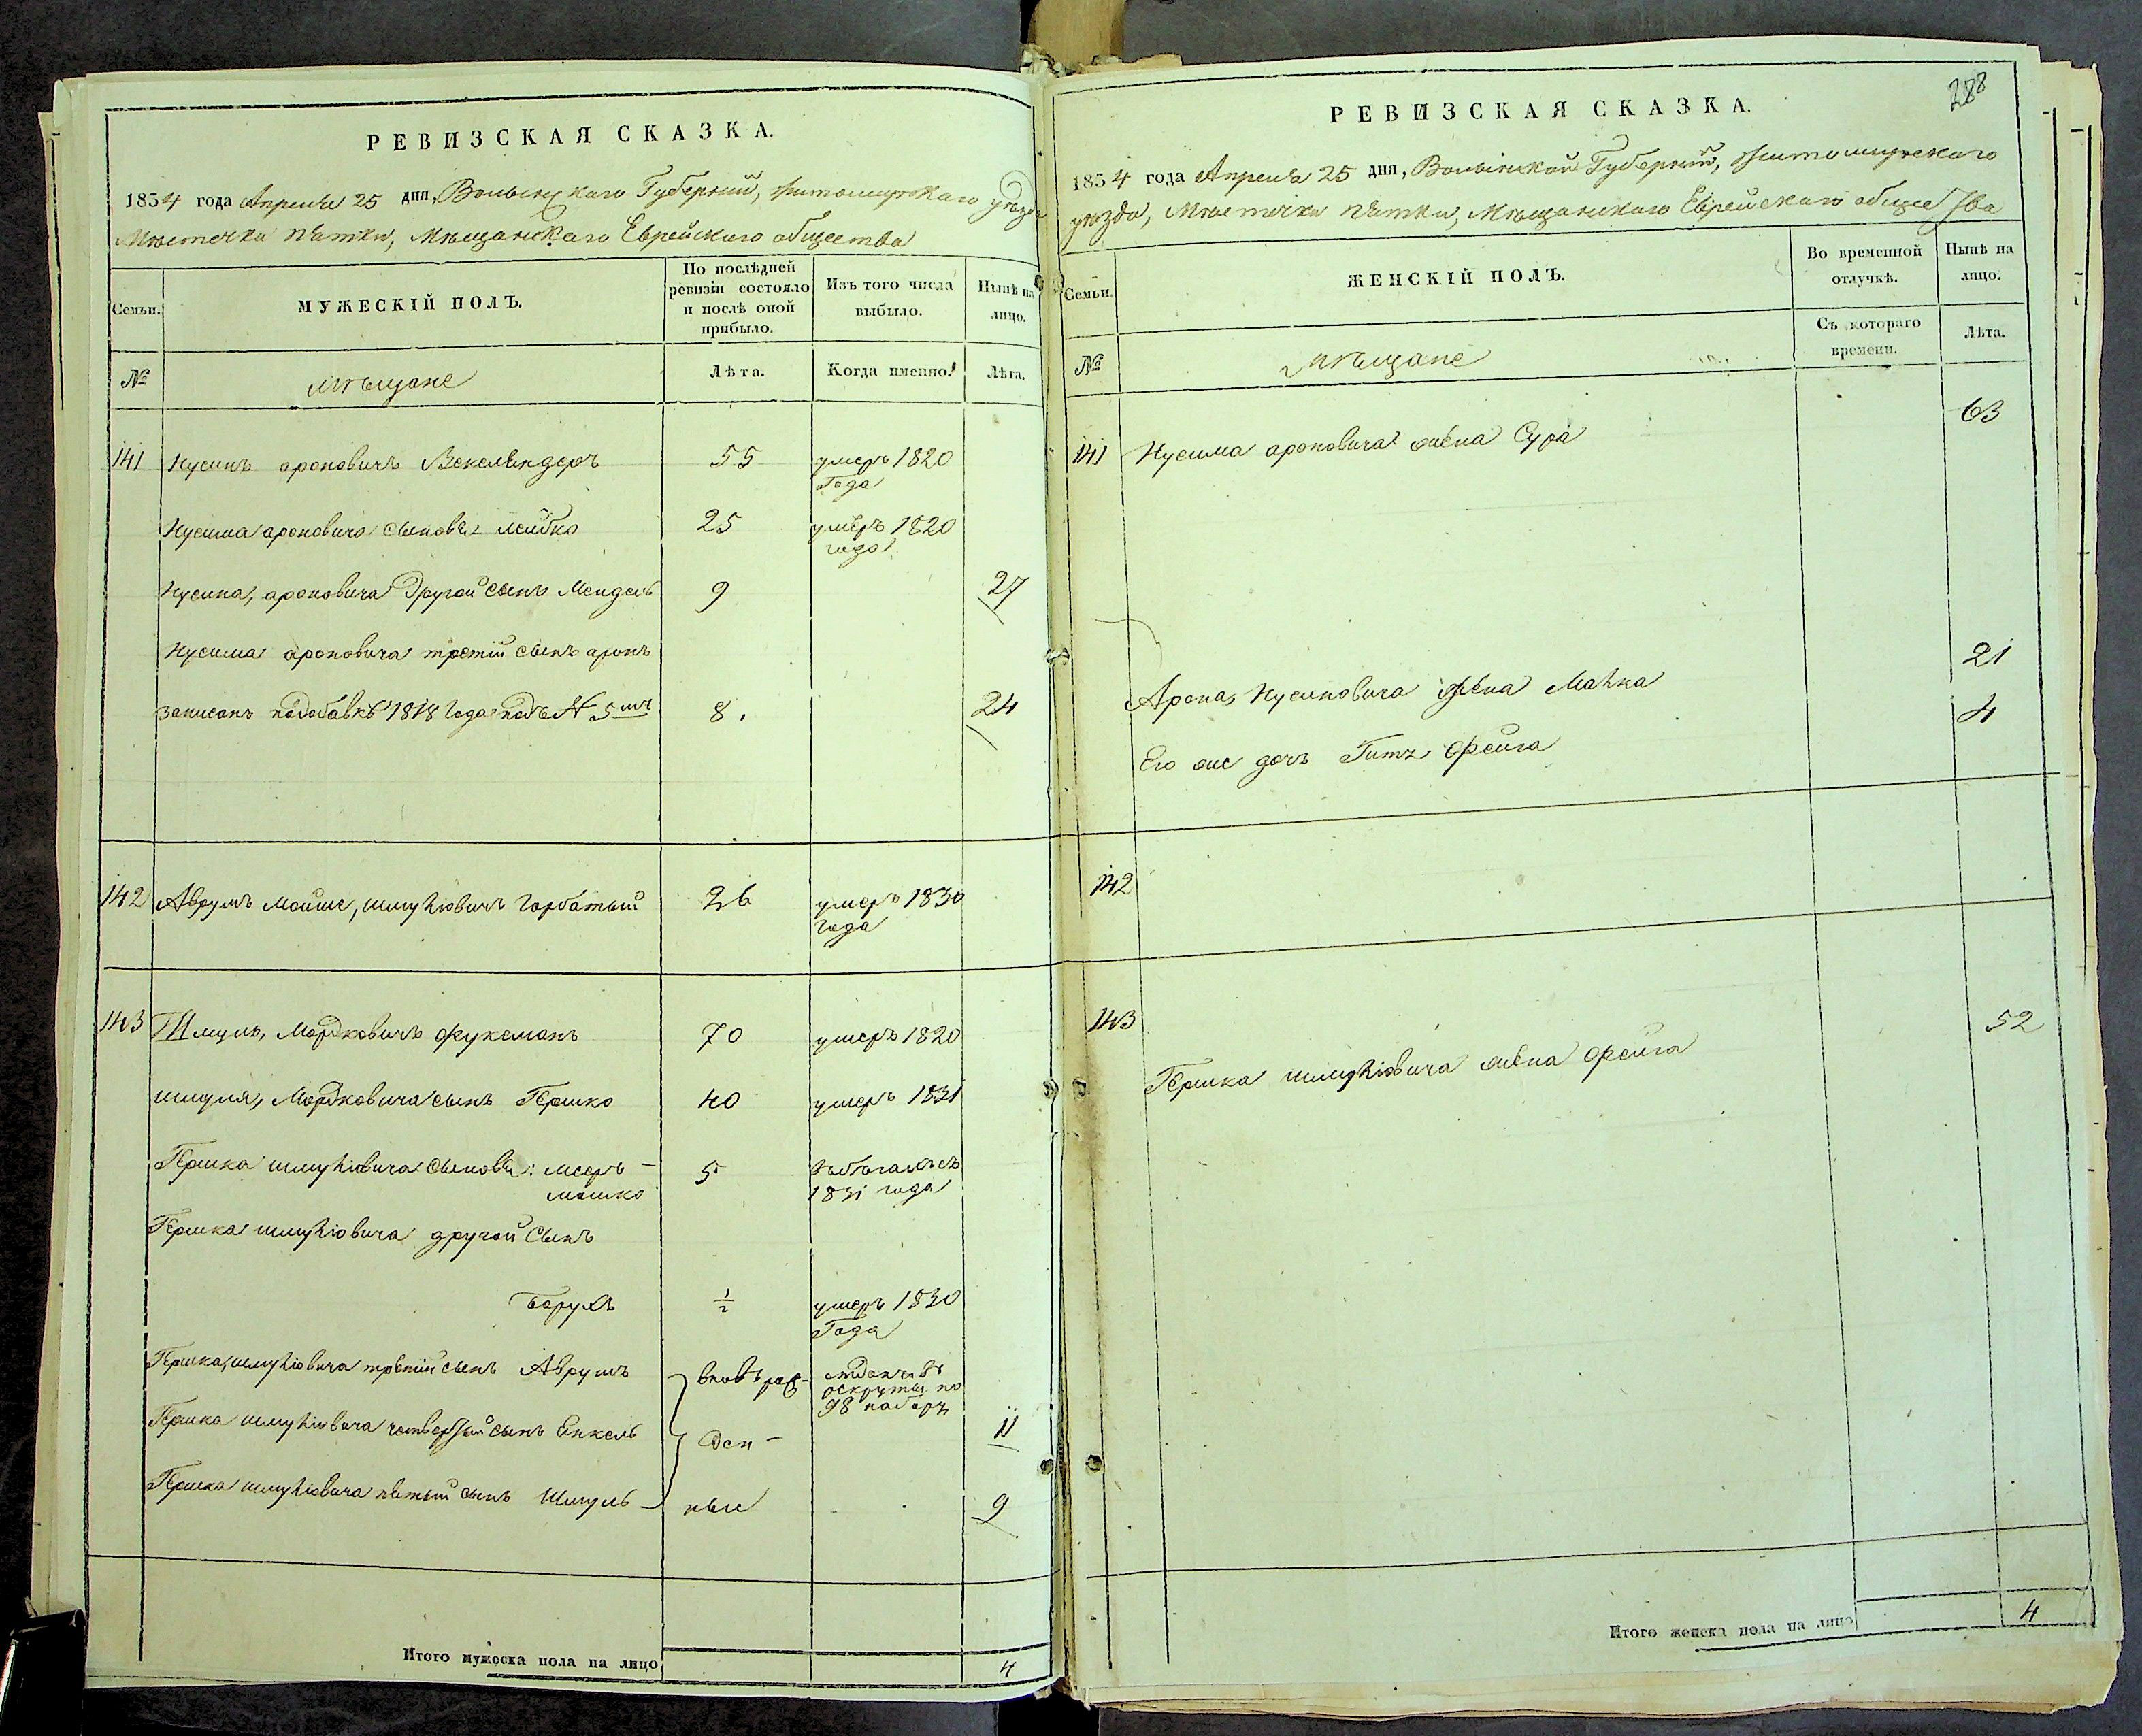 РЕВИЗСКАЯ СКАЗКА.
1834 года Апреля 25 дня, Волынскаго Губернии, Житомирскаго уезда
Местечка Пятки, Мещанскаго Еврейскаго общества
Семьи.
МУЖЕСКІЙ ПОЛЪ.
По послѣдней ревизіи состояло и послѣ оной прибыло.
Изъ того числа выбыло.
Нынѣ на лицо.
№
мѣщане
Лѣта.
Когда именно.
Лѣта.
141 Нусинъ ароновичъ 55 умеръ 1820
года
Нусима ароновича сыновья лейбко 25 умеръ 1820
года
Нусина, ароновича другой сынъ Мендель 9 27
Нусима ароновича третій сынъ аронъ
записанъ 1818 года подъ N 5мъ 8. 24
142 Аврумъ Мойше, шмулiовичъ Горбатый 26 умеръ 1830
года
143 Шмуль, Мордковичъ Фуксманъ 70 умеръ 1820
шмуля, Мордковича сынъ Гершко 40 умеръ 1831
Гершка шмулiовича сыновья: мееръ - 5
мошко 1831 года
Гершка шмулiовича другой Сынъ
Борухъ 1/2 умеръ 1830
Года
Гершка, шмулiовича третій сынъ Аврумъ вновь рож- отданъ въ
рекруты по
98 набору
Гершка шмулiовича четвертый сынъ Енкель ден- 11
Гершка шмулiовича пятый сынъ Шмуль ные 9
Итого мужеска пола на лицо 4
288
РЕВИЗСКАЯ СКАЗКА.
1834 года Апреля 25 дня, Волынской Губернии, Житомирскаго
уезда, Местечка Пятки, Мещанскаго Еврейскаго общества
Семьи.
ЖЕНСКІЙ ПОЛЪ.
Во временной отлучкѣ.
Нынѣ на лицо.
№
мѣщане
Съ котораго времени.
Лѣта.
141 Нусима ароновича жена Сура 63
Арона, Нусиновича жена Малка 21
Его же дочь Фейга 4
142
143 Гершка шмулiовича жена Фейга 52
Итого женска пола на лицо 4